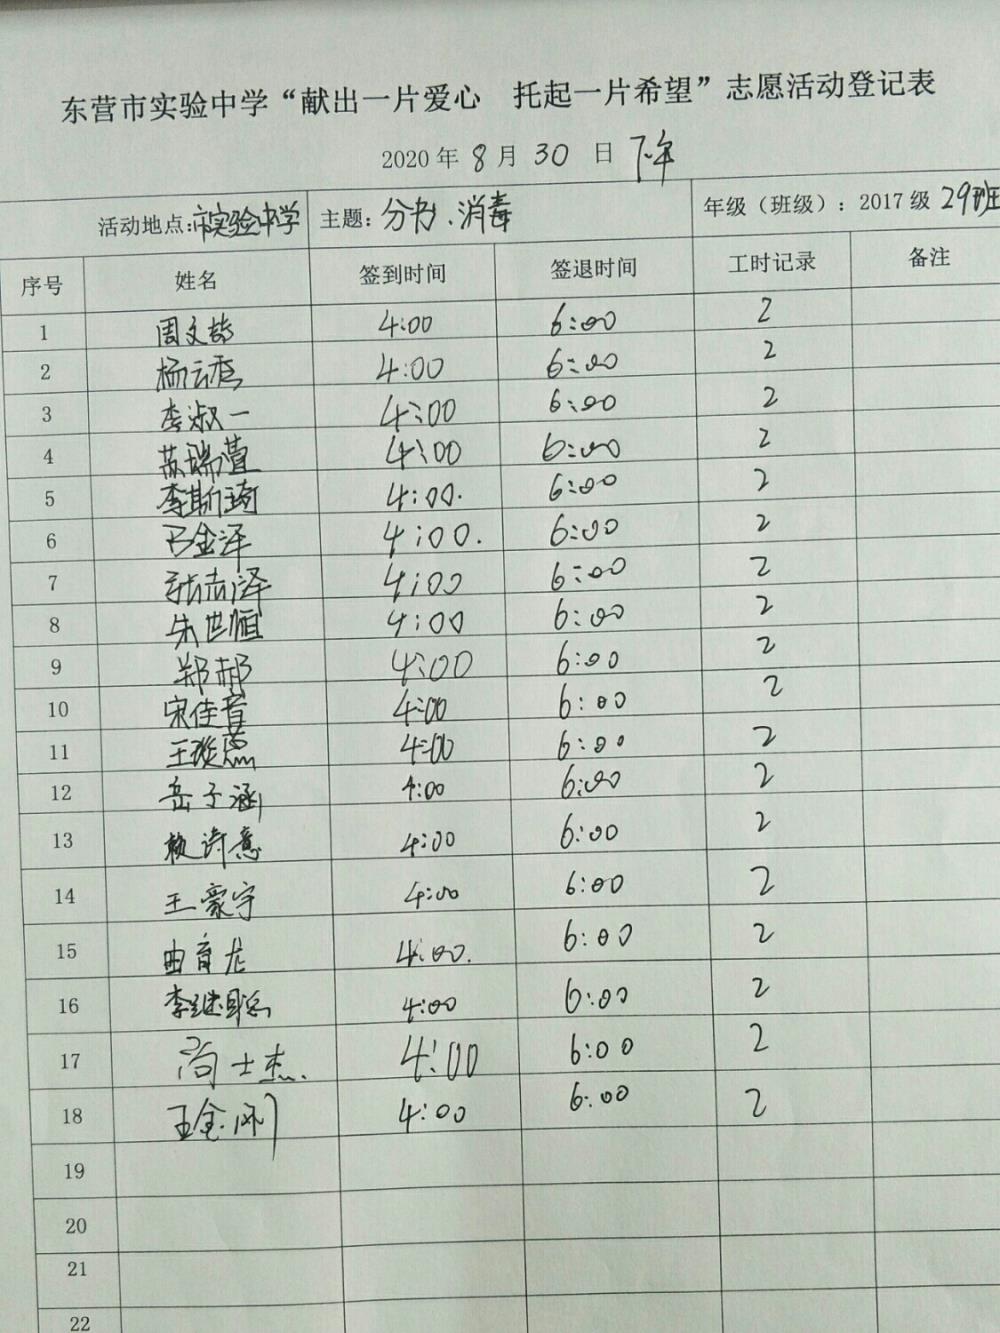 东营市实验中学“献出一片爱心 托起一片希望”志愿活动登记表
2020 年 8 月 30 日 下午
活动地点:市实验中学 主题: 分书、消毒 年级（班级）: 2017 级 29班
序号 姓名 签到时间 签退时间 工时记录 备注
1 周文 4:00 6:00 2
2 杨云 4:00 6:00 2
3 李淑一 4:00 6:00 2
4 苏瑞萱 4:00 6:00 2
5 李斯琦 4:00. 6:00 2
6 金泽 4:00. 6:00 2
7 张志泽 4:00 6:00 2
8 朱世恒 4:00 6:00 2
9 郑郝 4:00 6:00 2
10 宋佳音 4:00 6:00 2
11 王璇 4:00 6:00 2
12 岳子涵 4:00 6:00 2
13 诗意 4:00 6:00 2
14 王豪宇 4:00 6:00 2
15 曲育龙 4:00. 6:00 2
16 李继聪 4:00 6:00 2
17 尚士杰. 4:00 6:00 2
18 王金刚 4:00 6:00 2
19
20
21
22